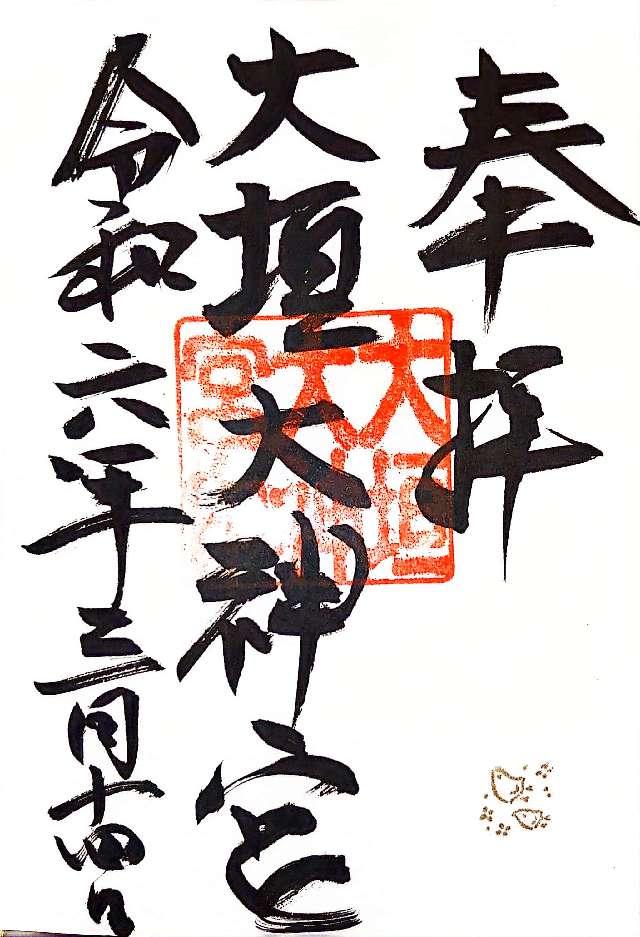 奉拝
大垣大神宮
令和六年三月十四日
大垣
大神
宮